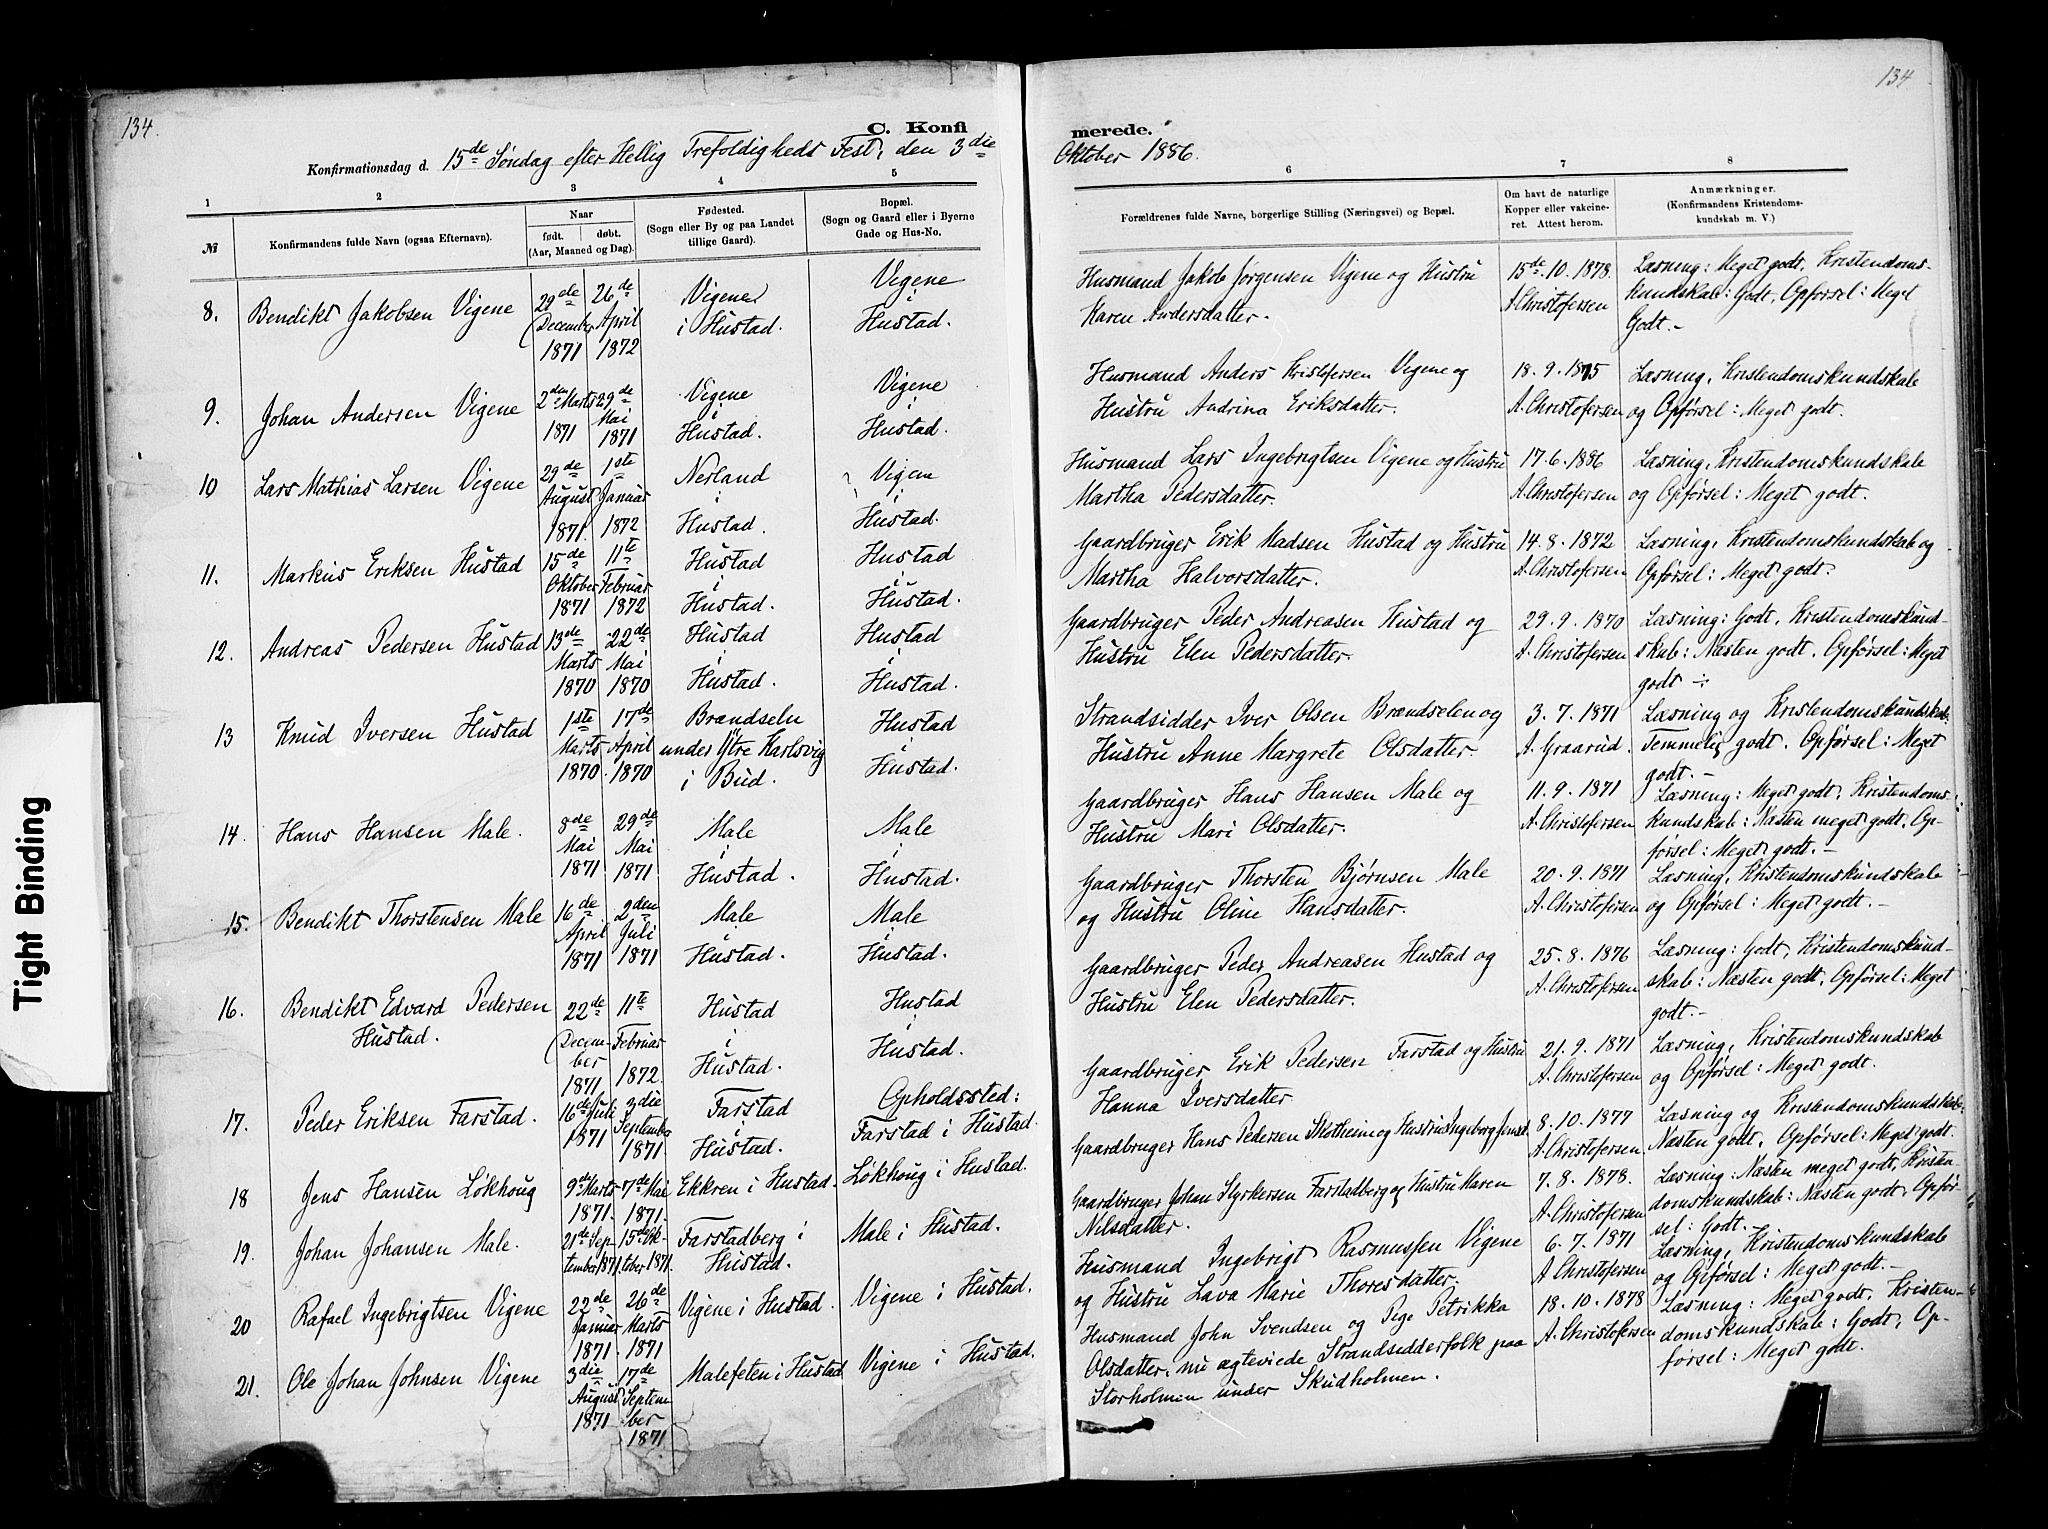 134.
C. Konfi
Konfirmationsdag d. 15de Søndag efter Hellig Trefoldigheds Fest, den 3die
1 2 3 4 5
№ Konfirmandens fulde Navn (ogsaa Efternavn). Naar født. døbt. (Aar, Maaned og Dag). Fødested. (Sogn eller By og paa Landet tillige Gaard). Bopæl. (Sogn og Gaard eller i Byerne Gade og Hus-No.
8. Bendikt Jakobsen Vigene 29de December 1871 26de April 1872 Vigene i Hustad. Vegene i Hustad.
9. Johan Andersen Vigene 2den Marts 1871 29de Mai 1871 Vigene i Hustad. Vigene i Hustad.
10 Lars Mathias Larsen Vigene 29de August 1871. 1ste Januar 1872 Nerland i Hustad. Vigene i Hustad.
11. Markus Eriksen Hustad 15de Oktober 1871 11te Februar 1872 Hustad i Hustad. Hustad i Hustad.
12. Andreas Pedersen Hustad 13de Marts 1870 22de Mai 1870 Hustad i Hustad. Hustad i Hustad.
13 Knud Iversen Hustad 1ste Marts 1870. 17de April 1870 Brændseln under Ytre Harlsvig i Bud. Hustad i Hustad.
14. Hans Hansen Male. 8de Mai 1871 29de Mai 1871 Male i Hustad. Male i Hustad.
15. Bendikt Thorstensen Male 16de April 1871 2den Juli 1871 Male i Hustad. Male i Hustad.
16. Bendikt Edvard Pedersen Hustad. 22de December 1871. 11te Februar 1872. Hustad i Hustad. Hustad i Hustad.
17. Peder Eriksen Farstad. 16de Juli 1871 3die September 1871 Farstad i Hustad. Opholdssted: Farstad i Hustad.
18 Jens Hansen Løkhoug 9de Marts 1871. 7de Mai 1871. Ekkren i Hustad. Løkhoug i Hustad.
19. Johan Johansen Male. 21de September 1871. 15de Oktober 1871. Farstadberg i Hustad. Male i Hustad.
20 Rafael Ingebrigtsen Vigene 22de Januar 1871. 26de Marts 1871 Vigene i Hustad. Vigene i Hustad.
21. Ole Johan Johnsen Vigene 3die August 1871. 17de September 1871 Malefeten i Hustad Vigene i Hustad.
134
merede.
Oktober 1886.
6 7 8
Forældrenes fulde Navne, borgerlige Stilling (Næringsvei) og Bopæl. Om havt de naturlige Kopper eller vakcineret. Attest herom. Anmærkninger. (Konfirmandens Kristendomskundskab m. V.)
Husmand Jakob Jørgensen Vigene og Hustru Karen Andersdatter. 15de. 10. 1878. A. Christofersen Læsning: Meget godt, Kristendomskundskab: Godt, Opførsel: Meget Godt. –
Husmand Anders Kristofersen Vegene og Hustru Andrina Eriksdatter. 18. 9. 1875 A. Christofersen Læsning, Kristendomskundskab og Opførsel: Meget godt.
Husmand Lars Ingebrigtsen Vigene og Hustru Martha Pedersdatter. 17. 6. 1886 A. Christofersen Læsning, Kristendomskundskab og Opførsel: Meget godt.
Gaardbruger Erik Madsen Hustad og Hustru Martha Halvorsdatter. 14. 8. 1872 A. Christofersen Læsning, Kristendomskundskab og Opførsel: Meget godt.
Gaardbruger Peder Andreasen Hustad og Hustru Elen Pedersdatter. 29. 9. 1870 A. Christofersen Læsning: Godt, Kristendomskundskab: Næsten godt, Opførsel: Meget godt
Strandsidder Iver Olsen Brændselen og Hustru Anne Margrete Olsdatter. 3. 7. 1871 A. Graarud. Læsning og Kristendomskundskab: Temmelig godt. Opførsel: Meget godt. –
Gaardbruger Hans Hansen Male og Hustru Mari Olsdatter. 11. 9. 1871 A. Christofersen Læsning: Meget godt, Kristendomskundskab: Næsten meget godt, Opførsel: Meget godt. –
Gaardbruger Thorsten Bjørnsen Male og Hustru Oline Hansdatter. 20. 9. 1871 A. Christofersen Læsning, Kristendomskundskab og Opførsel: Meget godt. –
Gaardbruger Peder Andreasen Hustad og Hustru Elen Pedersdatter. 25. 8. 1876 A. Christofersen Læsning: Godt, Kristendomskundskab: Næsten godt, Opførsel: Meget godt. –
Gaardbruger Erik Pedersen Farstad og Hustru Hanna Iversdatter. 21. 9. 1871 A. Christofersen Læsning, Kristendomskundskab og Opførsel: Meget godt.
Gaardbruger Hans Pedersen Slotheim og Hustru Ingeborg Jensd. 8. 10. 1877 A. Christofersen Læsning og Kristendomskundskab: Næsten godt, Opførsel: Meget godt.
Gaardbruger Johan Styrkersen Farstadberg og Hustru Maren Nilsdatter. 7. 8. 1878. A. Christofersen Læsning: Næsten meget godt, Kristendomskundskab: Næsten godt, Opførsel: Godt.
Husmand Ingebrigt Rasmussen Vigene og Hustru Lava Marie Thoresdatter. 6. 7. 1871 A Christofersen Læsning, Kristendomskundskab og Opførsel: Meget godt. –
Husmand John Svendsen og Pege Petrikka Olsdatter, nu ægteviede Strandsidderfolk paa Storholmen under Skudholmen. 18. 10. 1878 A. Christofersen Læsning: Meget godt, Kristendomskundskab: Godt, Opførsel: Meget godt.
Tight Binding